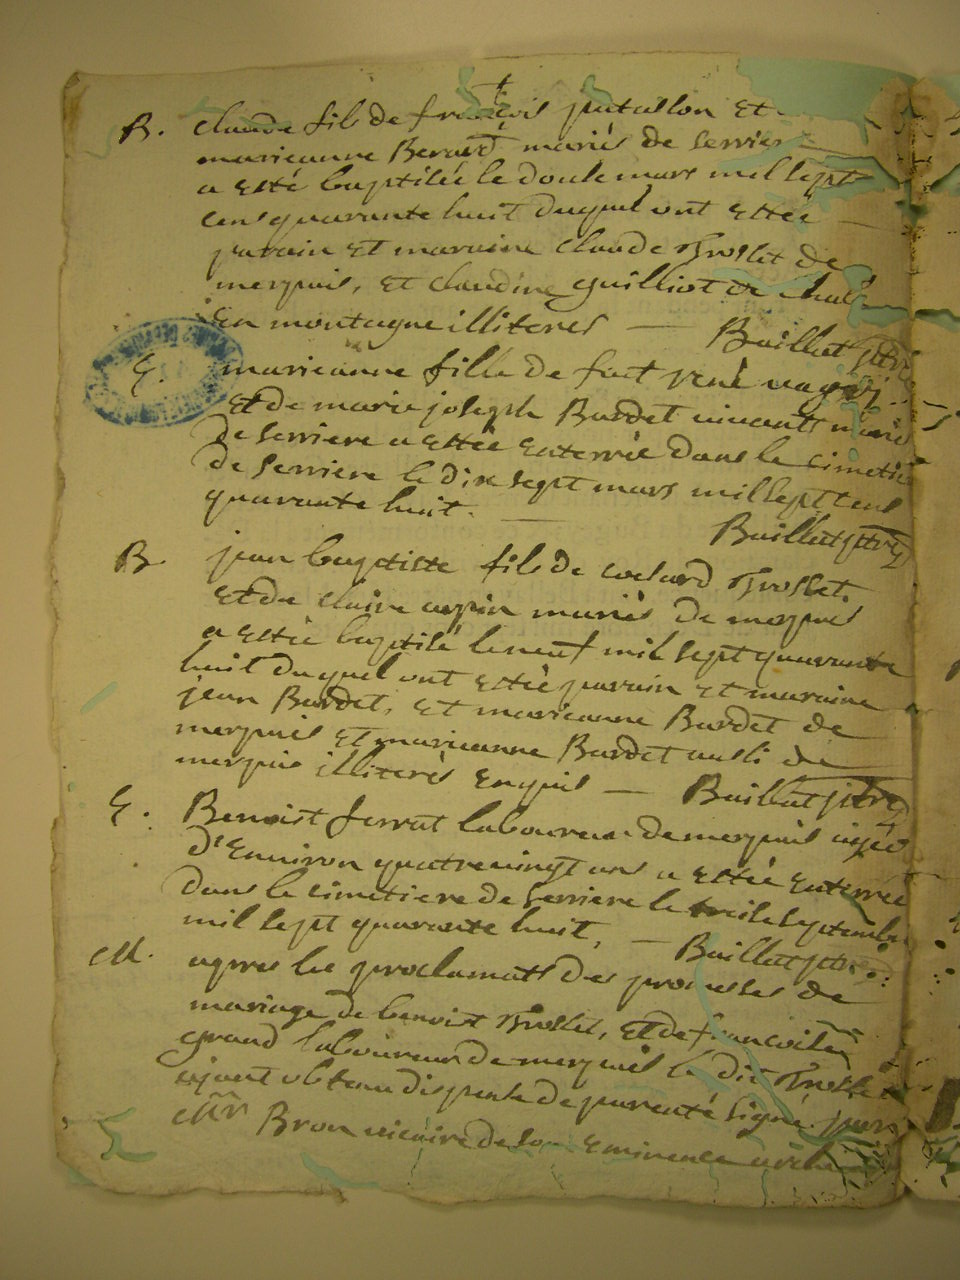 B. claude fils de françois putallon Et
marieanne Berard mariés de serrier
a Esté baptisée le douse mars mil sept
cens quarante huit duquel ont Ettée
parain Et maraine claude Trollet de
merpuis, Et claudine guilliot de chal
En montagne illiterés — Baillat ptre
E. marieanne fille de fut rené
Et de marie joseph Burdet vivants mariés
De serriere a Ettée Enterrée dans le cimetie
de serriere le dix sept mars mil sept cens
quarante huit. — Baillat ptre
B. jean baptiste fils de Trollet
Et de claire mariés de merpuis
a Estée baptisé le neuf mil sept quarante
huit duquel ont Estée parain Et maraine
jean Burdet, Et marieanne Burdet de
merpuis Et marieanne Burdet aussi de
merpuis illiterés Enquis — Baillat ptre
E. Benoist ferrat laboureur de merpuis agée
d'Environ quatrevingt ans a Ettée Enterrée
dans le cimetiere de serriere le treise septembre
mil sept quarante huit, — Baillat ptre
M. apres les proclamats des promesses de
mariage de benoist Trollet, Et de françoise
grand laboureur de merpuis le dit Trollet
ayant obtenu dispense de parenté signé par
Mr Bron vicaire de son Eminence arche